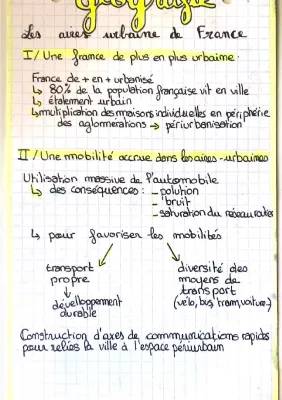 Géographie
Les aires urbaine de France
I/ Une france de plus en plus urbaine.
France de + en + urbanisé
↳ 80% de la population française vit en ville
↳ étalement urbain
↳ multiplication des maisons individuelles en périphérie
des aglomérations → périurbanisation
II/ Une mobilité accrue dans les aires-urbaines
Utilisation massive de l'automobile
↳ des conséquences : - polution
- bruit
- saturation du réseau routier
↳ pour favoriser les mobilités
transport
propre
↓
dévelloppement
durable
diversité des
moyens de
transport
(vélo, bus, tram, voiture.)
Construction d'axes de communications rapids
pour reliés la ville à l'espace périurbain